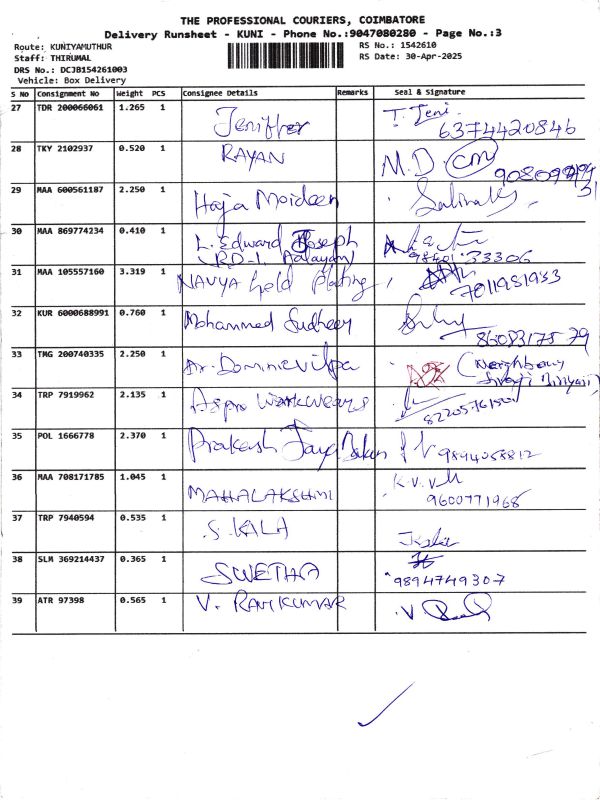 THE PROFESSIONAL COURIERS, COIMBATORE
Delivery Runsheet - KUNI - Phone No.:9047080280 - Page No.:3
Route: KUNIYAMUTHUR
RS No.: 1542610
Staff: THIRUMAL
RS Date: 30-Apr-2025
DRS No.: DCJB154261003
Vehicle: Box Delivery
S No Consignment No Weight PCS Consignee Details Remarks Seal & Signature
27 TDR 200066061 1.265 1 Jeniffer T. Jeni
6374420846
28 TKY 2102937 0.520 1 RAYAN M.D.
29 MAA 600561187 2.250 1 Haja Moideen
30 MAA 869774234 0.410 1 L. Edward Joseph
31 MAA 105557160 3.319 1 NAVYA Gold Plating
7011981953
32 KUR 6000688991 0.760 1 Mohammed Sudheer
8608317579
33 TMG 200740335 2.250 1 (Neighbour
34 TRP 7919962 2.135 1 Aspro Workwears
35 POL 1666778 2.370 1 Prakash 9894058812
36 MAA 708171785 1.045 1 MAHALAKSHMI
9600771968
37 TRP 7940594 0.535 1 S. KALA
38 SLM 369214437 0.365 1 SWETHA
9894749307
39 ATR 97398 0.565 1 V. RAVIKUMAR